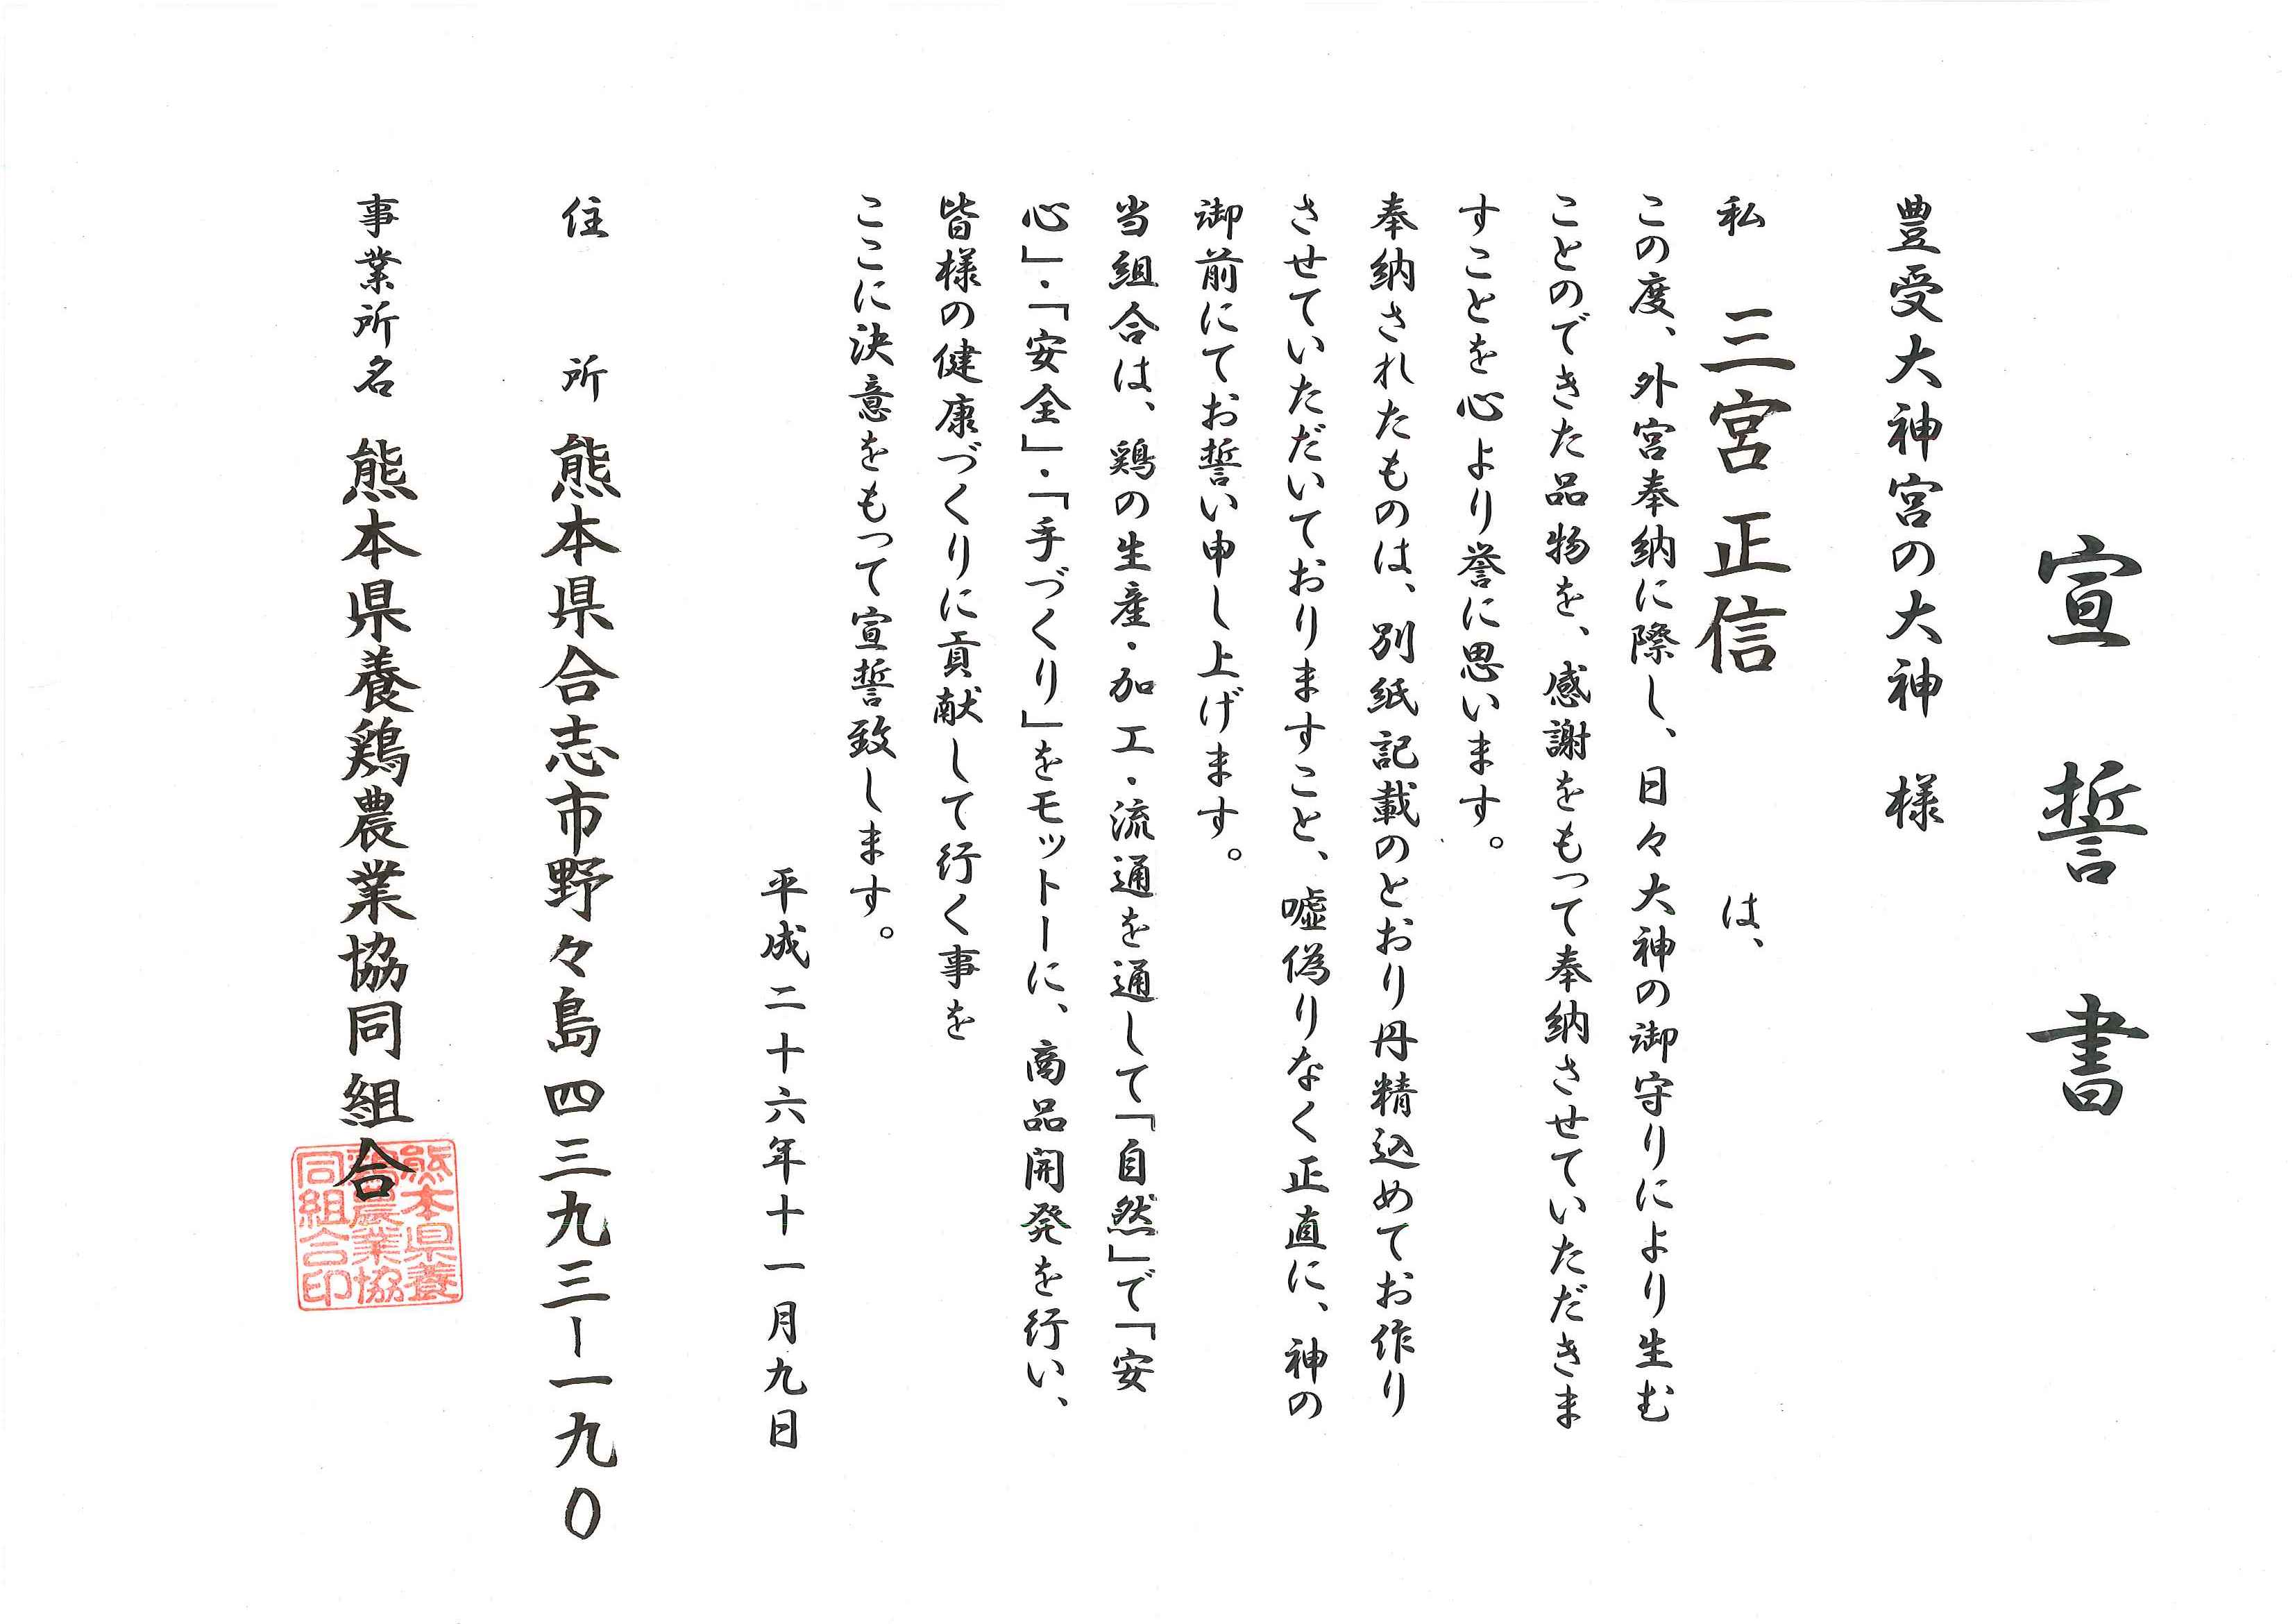 宣誓書
豊受大神宮の大神 様
私 三宮正信 は、
この度、外宮奉納に際し、日々大神の御守りにより生む
ことのできた品物を、感謝をもって奉納させていただきま
すことを心より誉に思います。
奉納されたものは、別紙記載のとおり丹精込めてお作り
させていただいておりますこと、嘘偽りなく正直に、神の
御前にてお誓い申し上げます。
当組合は、鶏の生産・加工・流通を通して「自然」で「安
心」・「安全」・「手づくり」をモットーに、商品開発を行い、
皆様の健康づくりに貢献して行く事を
ここに決意をもって宣誓致します。
平成二十六年十一月九日
住 所 熊本県合志市野々島四三九三ー一九〇
事業所名 熊本県養鶏農業協同組合
熊本県養
鶏農業協
同組合印